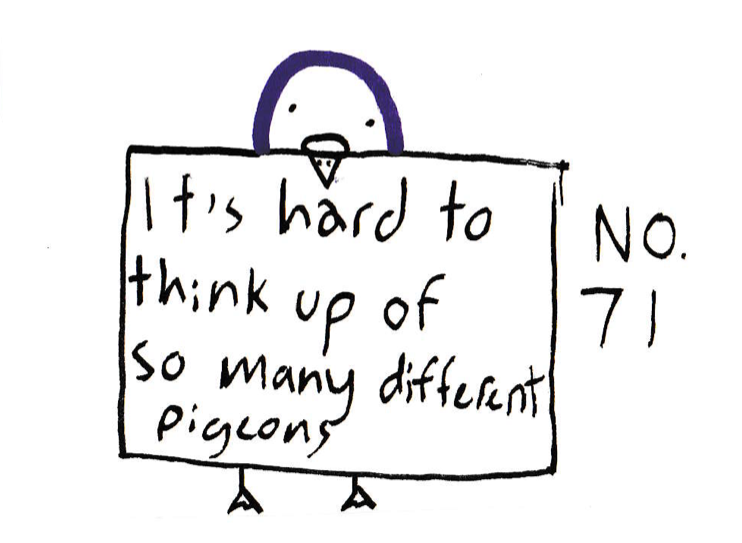 It's hard to
think up of
so many different
pigeons
NO.
71